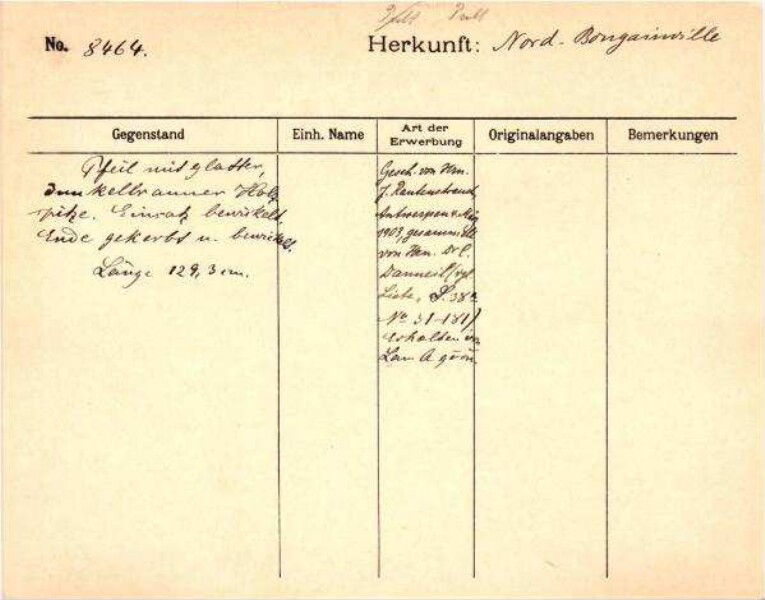 No. 8464.
Herkunft: Nord-Bougainville
Gegenstand
Einh. Name
Art der Erwerbung
Originalangaben
Bemerkungen
Pfeil mit glatter,
dunkelbrauner Holz
spitze. Einsatz bewickelt.
Ende gekerbt u. bewickelt.
Länge 129,3 cm.
Gesch. von Hrn.
J. Rautenstrauch
Antwerpen
1903, gesammelt
von Hrn. Dr C.
Danneil (vgl
Liste, S. 38
No 31-181)
erhalten im